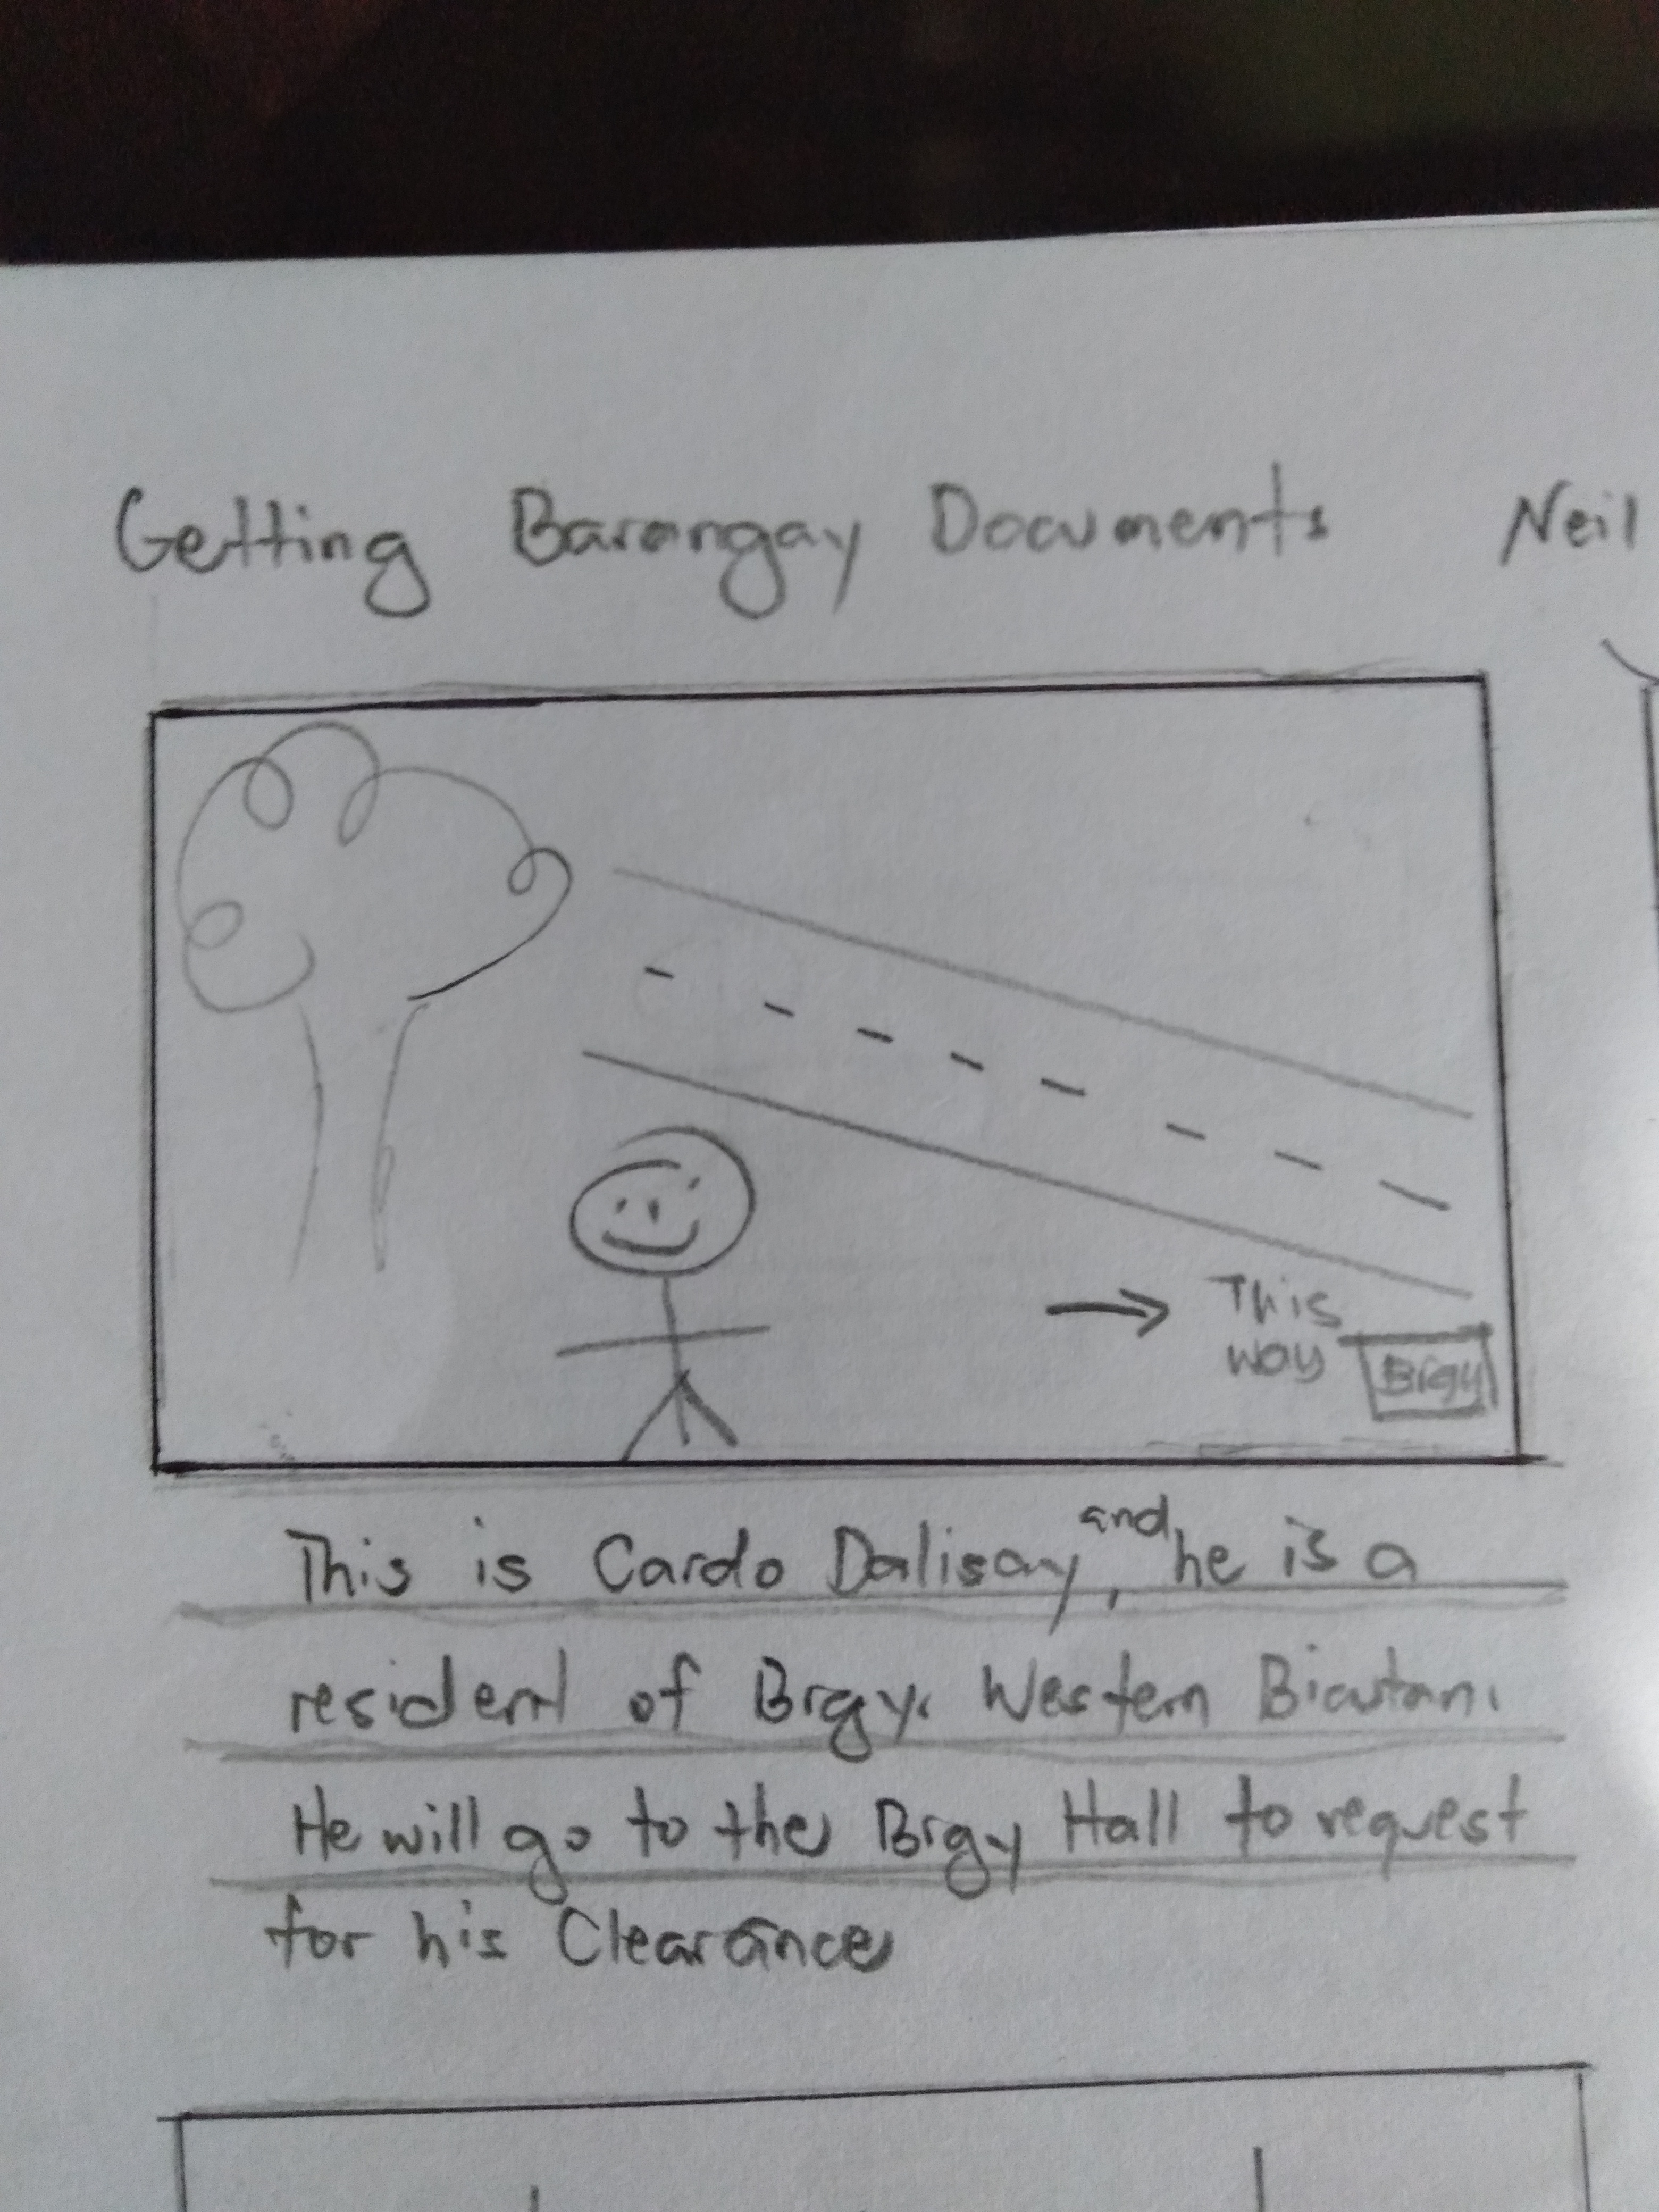 Getting Barangay Documents Neil
This
way
Brgy
This is Cardo Dalisay, and he is a
resident of Brgy. Western Bicutan.
He will go to the Brgy Hall to request
for his Clearance